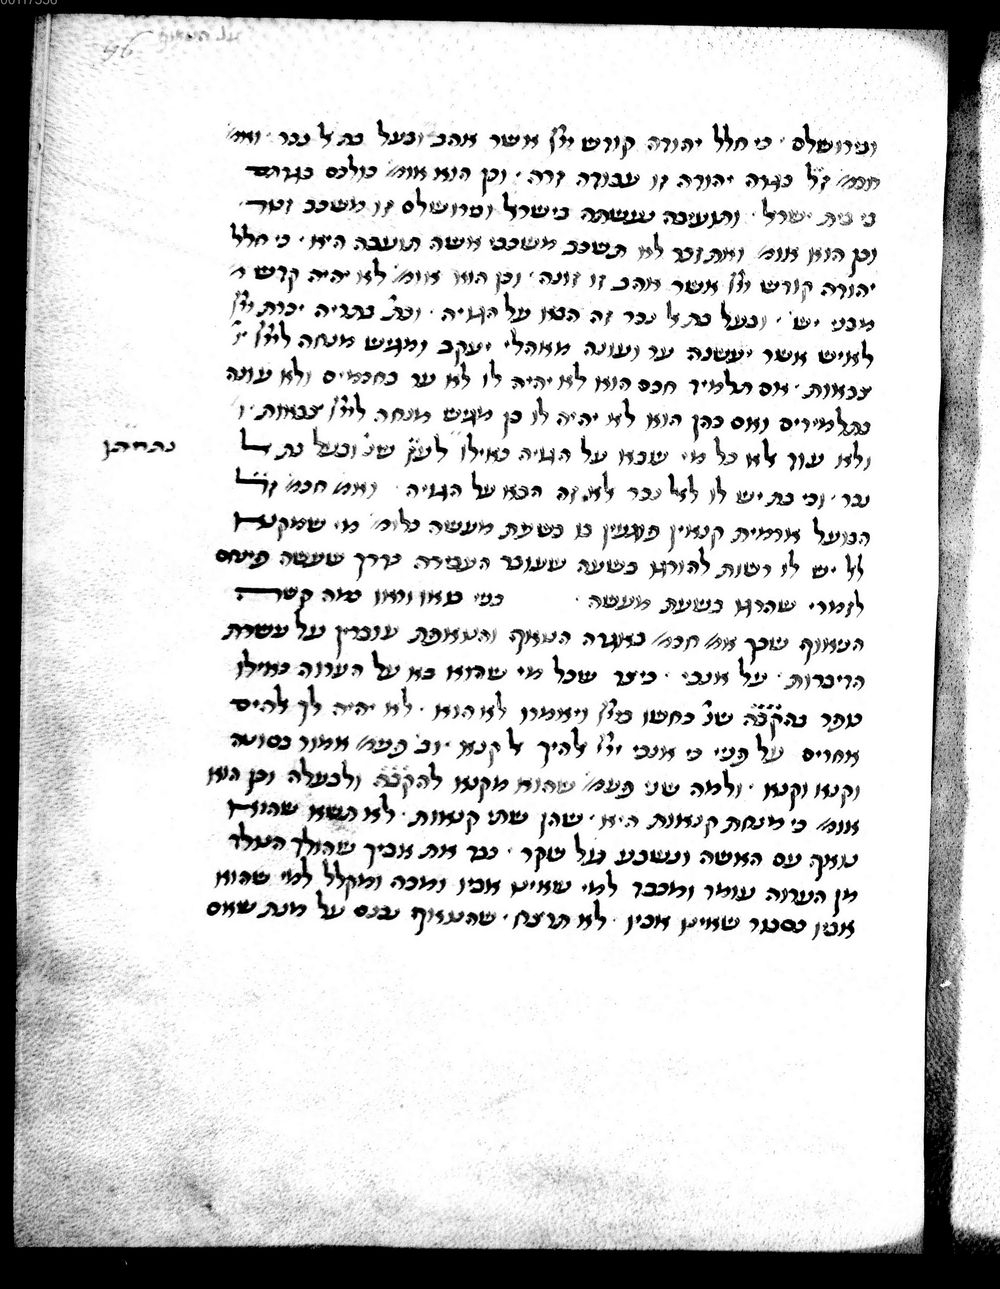 על הניאוף
96
ובירושלם · כי חלל יהודה קודש יי׳ אשר אהב ובעל בת אל נכר · ואמ׳
חכמ׳ ז״ל בגדה יהודה זו עבודה זרה · וכן הוא אומ׳ כולכם בגדתם
בי בית ישראל · ותועיבה נעשתה בישראל ובירושלם זו משכב זכר
וכן הוא אומ׳ ואת זכר לא תשכב משכבי אשה תועבה היא · כי חלל
יהודה קודש יי׳ אשר אהב זו זונה · וכן הוא אומ׳ לא יהיה קדש מ
מבני יש׳ · ובעל בת אל נכר זה הבא על הגויה · וכת׳ בתריה יכרת יי׳
לאיש אשר יעשנה ער ועונה מאהלי יעקב ומגיש מנחה ליי׳ י׳
צבאות · אם תלמיד חכם הוא לא יהיה לו לא ער בחכמים ולא עונה
בתלמידים ואם כהן הוא לא יהיה לו בן מגיש מנחה ליי׳ צבאות · ו׳
ולא עוד אלא כל מי שבא על הגויה כאילו לע״ז שנ׳ ובעל בת אל
נתחתן
נכר · וכי בת יש לו לאל נכר אלא זה הבא על הגויה · ואמ׳ חכמ׳ ז״ל
הבועל ארמית קנאין פוגעין בו בשעת מעשה כלומ׳ מי שמקנא
לאל יש לו רשות להורגו בשעה שעובר העבירה כדרך שעשה פינחס
לזמרי שהרגו בשעת מעשה · בבי בואו וראו כמה קשה
הניאוף שכך אמ׳ חכמ׳ באגדה הנואף והנואפת עוברין על עשרת
הדיברות · על אנכי · כיצד שכל מי שהוא בא על הערוה כאילו
כופר בהקב״ה שנ׳ כחשו ביי׳ ויאמרו לא הוא · לא יהיה לך אלהים
אחרים על פני כי אנכי יי׳ אלהיך אל קנא · וב׳ פעמ׳ אמור בסוטה
וקנא וקנא · ולמה שני פעמ׳ שהוא מקנא להקב״ה ולבעלה וכן הוא
אומ׳ כי מנחת קנאות היא · שהן שתי קנאות · לא תשא שהוא
נואף עם האשה ונשבע על שקר · כבד את אביך שהולך הנולד
מן הערוה עומד ומכבד למי שאינו אביו ומכה ומקלל למי שהוא
אביו כסבור שאינו אביו · לא תרצח · שהנואף נכנס על מנת שאם